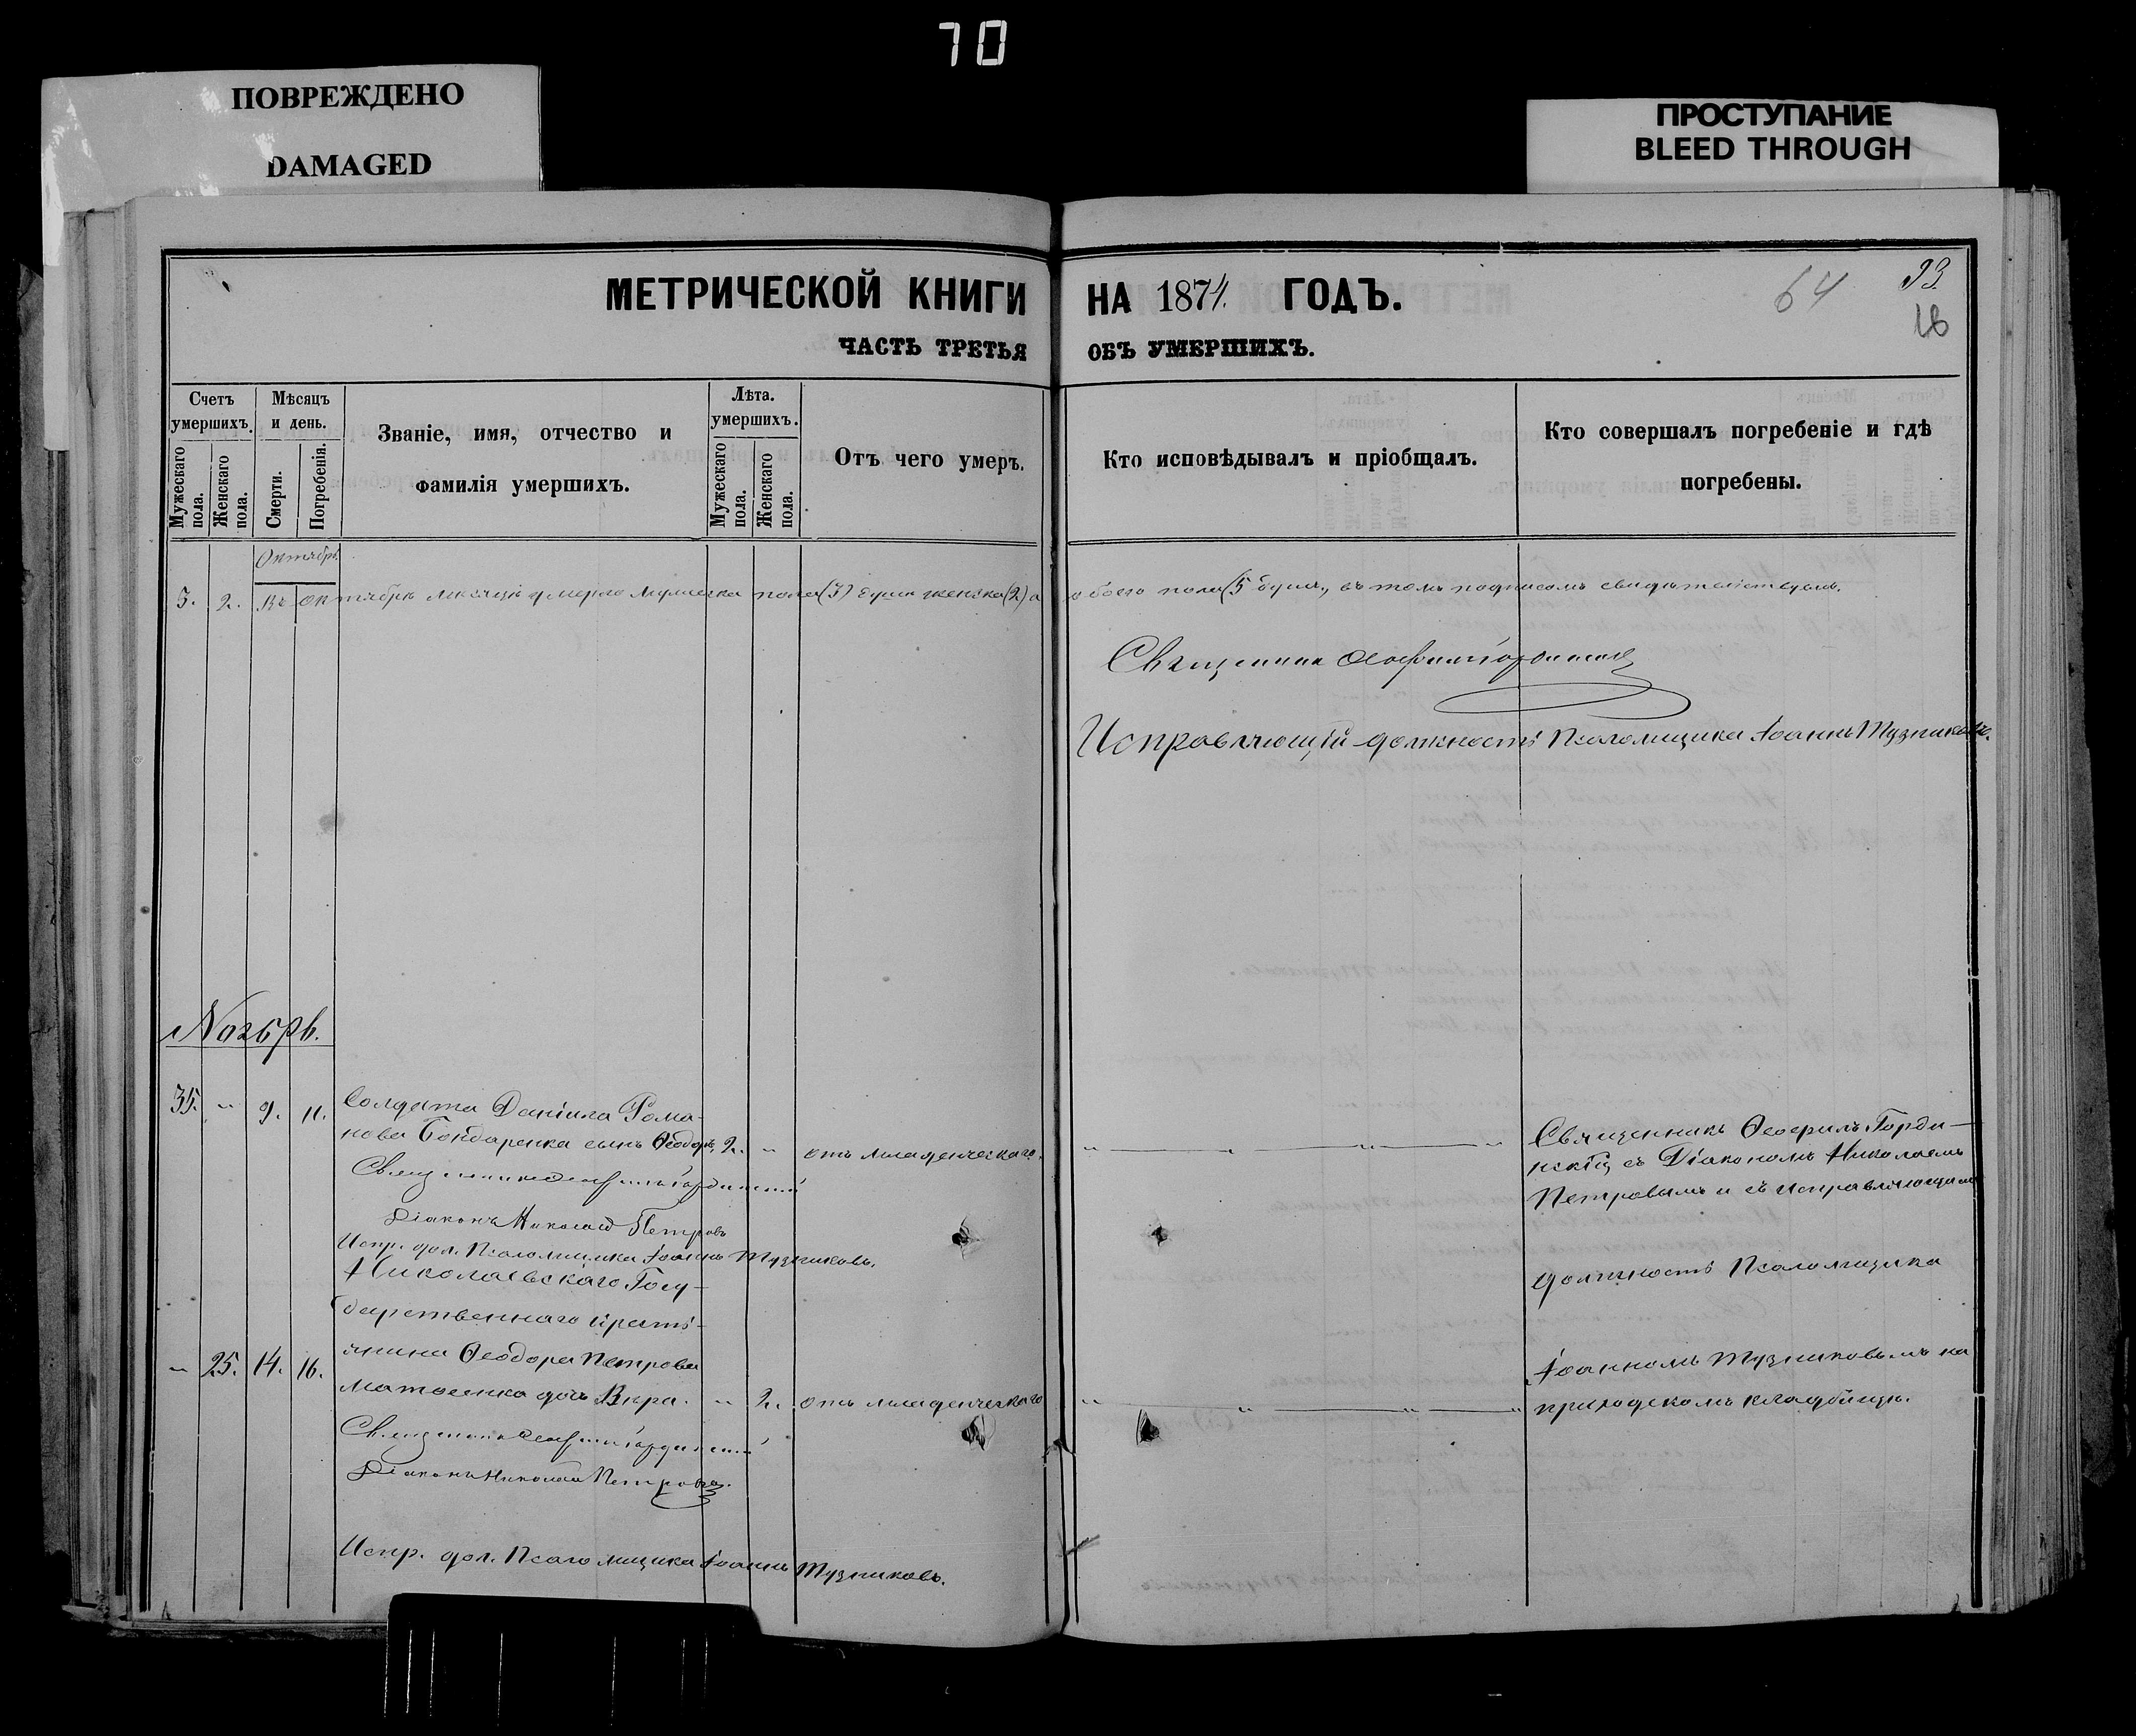 70
ПОВРЕЖДЕНО
DAMAGED
ПРОСТУПАНИЕ
BLEED THROUGH
МЕТРИЧЕСКОЙ КНИГИ НА 1874. ГОДЪ.
64 93.
ЧАСТЬ ТРЕТЬЯ ОБЪ УМЕРШИХЪ.
Счетъ умершихъ.
Мужескаго пола.
Женскаго пола.
Мѣсяцъ и день.
Смерти.
Погребенія.
Званіе, имя, отчество и
фамилія умершихъ.
Лѣта.
умершихъ.
Мужескаго пола.
Женскаго пола.
Отъ чего умеръ.
Кто исповѣдывалъ и пріобщалъ.
Кто совершалъ погребеніе и гдѣ
погребены.
Октябрь
3. 2. Въ октябрѣ мѣсяцѣ умерло мужеска пола (3) душъ женска (2) а обоего пола (5 душъ, въ томъ подписомъ свидѣтельствуемъ.
Священникъ Ѳеофилъ Гординскій
Исправляющій должность Псаломщика Іоаннъ Тузниковъ.
Ноябрь.
35. „ 9. 11. Солдата Даніила Рома-
нова Бондаренка сынъ Ѳеодоръ. 2. „ отъ младенческаго.
Священникъ Ѳеофилъ Гординскій
Діаконъ Николай Петровъ
Испр. дол. Псаломщика Іоаннъ Тузниковъ.
Священникъ Ѳеофилъ Горди-
нскій съ Діакономъ Николаемъ
Петровымъ и съ исправляющимъ
должность Псаломщика
Іоанномъ Тузниковымъ на
приходскомъ кладбищѣ.
Николаевскаго Госу-
дарственнаго крестъ-
янина Ѳеодора Петрова
„ 25. 14. 16. дочь Вѣра. „ 2. отъ младенческаго
Священникъ Ѳеофилъ Гординскій
Діаконъ Николай Петровъ.
Испр. дол. Псаломщика Іоаннъ Тузниковъ.